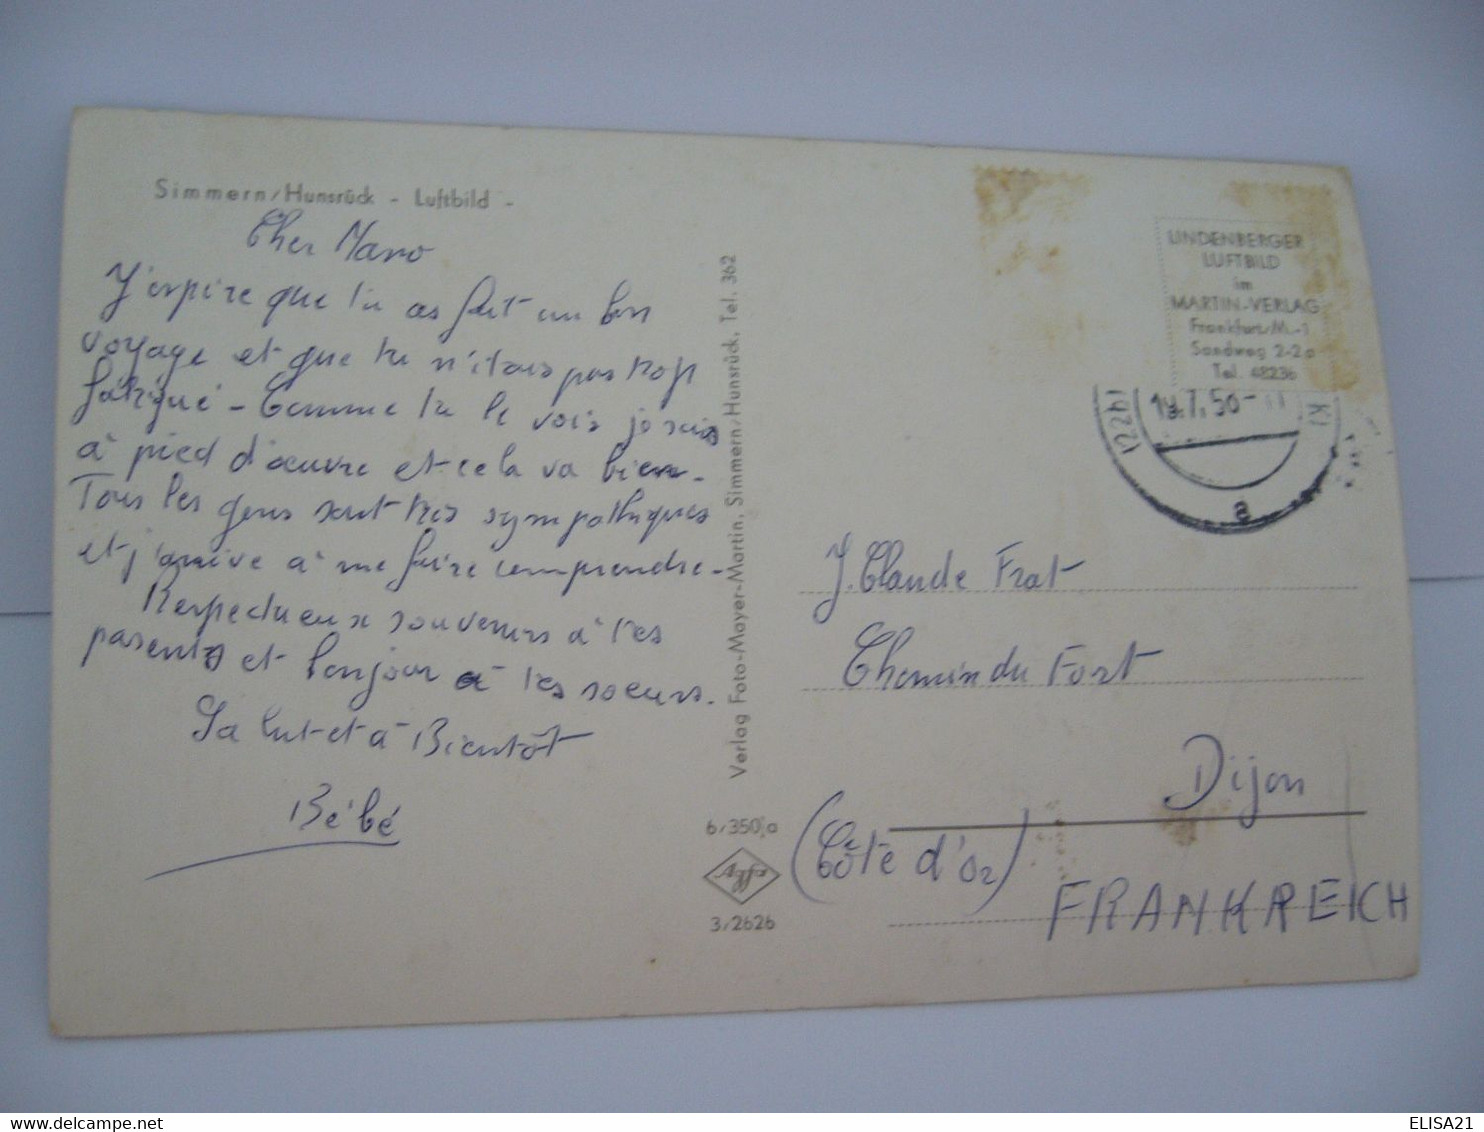 Simmern/Hunsrück - Luftbild -
Cher Maro
J'espère que tu as fait un bon
voyage et que tu n'étais pas trop
fatigué - Comme tu le vois je suis
à pied d'œuvre et cela va bien.
Tous les gens sont très sympathiques
et j'arrive à me faire comprendre.
Respectueux souvenirs à tes
parents et bonjour à tes soeurs.
Salut et à Bientôt
Bébé
Verlag Foto-Mayer-Martin, Simmern/Hunsrück, Tel. 362
6/350/a
Agfa
3/2626
LINDENBERGER
LUFTBILD
im
MARTIN-VERLAG
Frankfurt/M.-1
Sandweg 2-2a
Tel. 48236
(22b)
a
J. Claude Frat
Chemin du Fort
Dijon
(Côte d'Or)
FRANKREICH
ELISA21